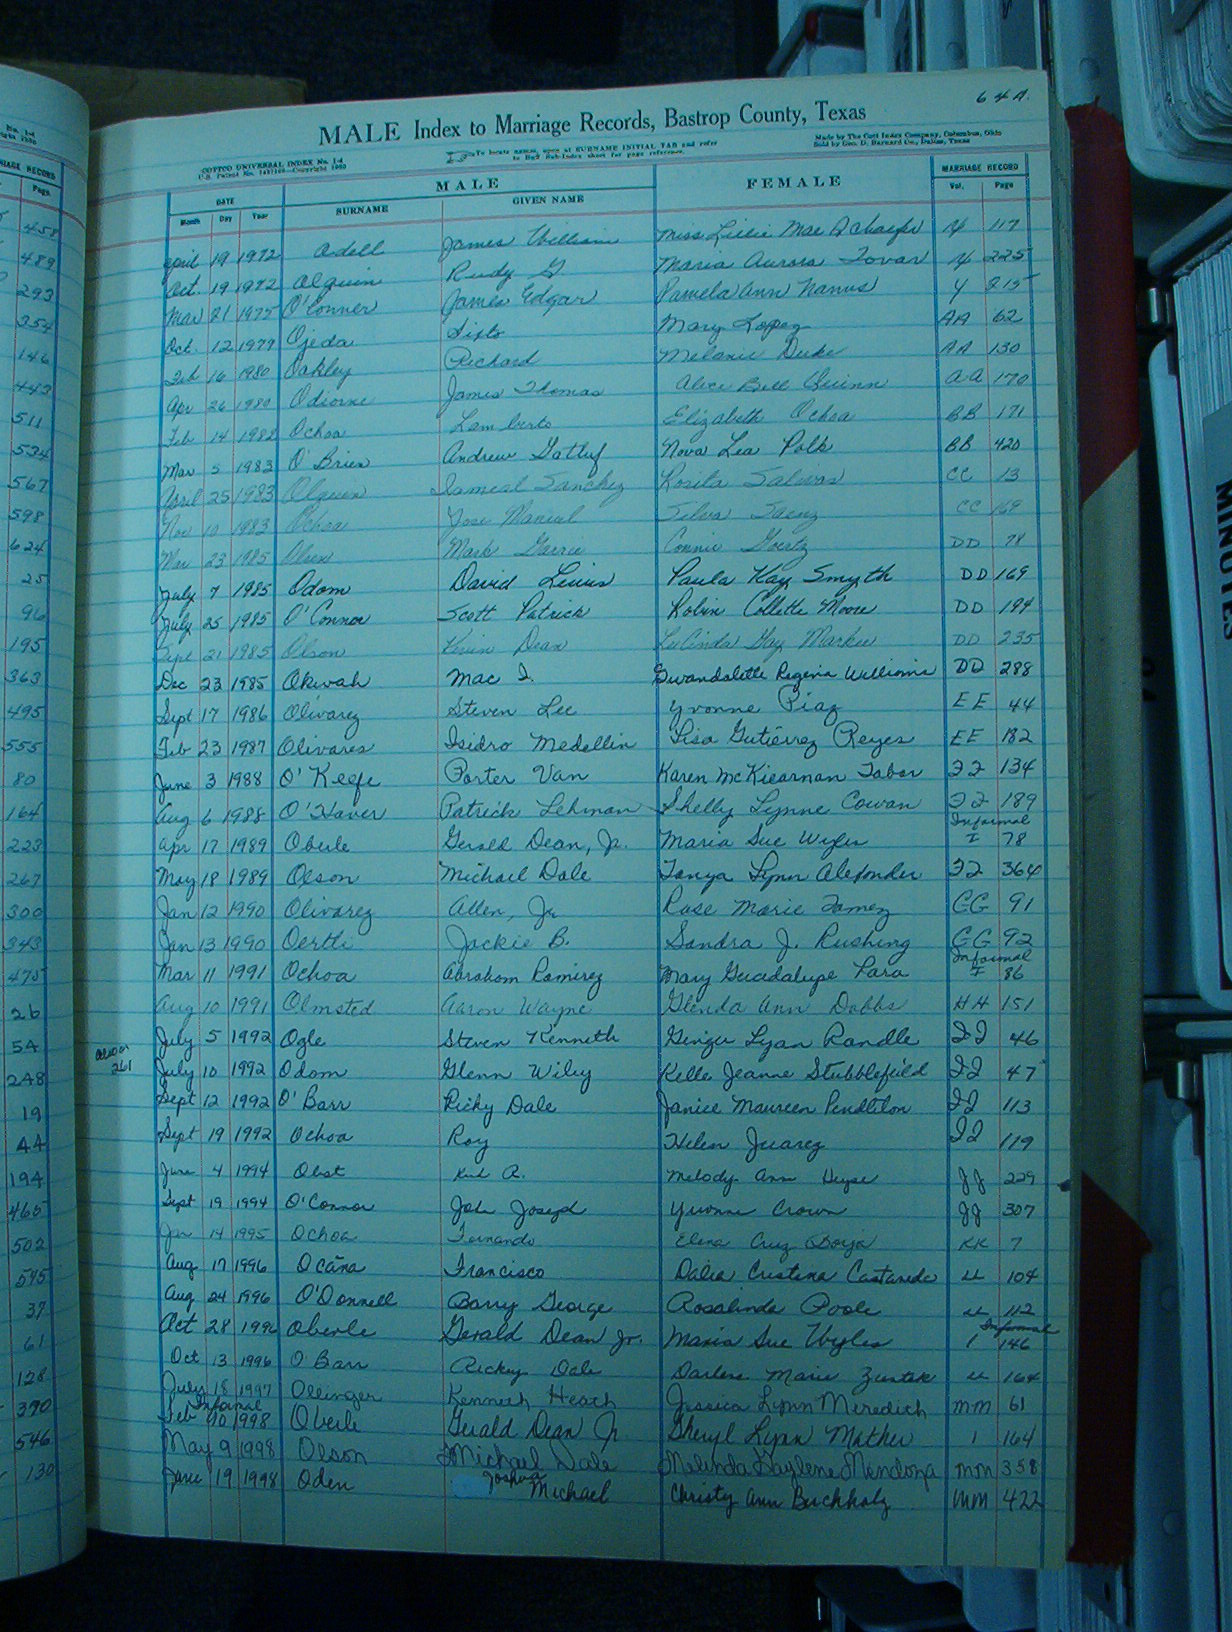 64A.
MALE Index to Marriage Records, Bastrop County, Texas
COTTCO UNIVERSAL INDEX No. 1-d
U.S. Patent No. Copyright
To locate names, open at SURNAME INITIAL TAB and refer
to Sub-Index sheet for page reference.
Made by The Cott Index Company, Columbus, Ohio
Sold by Geo. D. Barnard Co., Dallas, Texas
DATE MALE FEMALE MARRIAGE RECORD
Month Day Year SURNAME GIVEN NAME Vol. Page
April 19 1972 Odell James William Miss Lillie Mae Schaefer Y 117
Oct. 19 1972 Olguin Rudy G Maria Aurora Tovar Y 225
Mar 21 1975 O'Conner James Edgar Pamela Ann Nanus Y 215
Oct 12 1979 Ojeda Sixto Mary Lopez AA 62
Feb 16 1980 Oakley Richard Melanie Duke AA 130
Apr 26 1980 Odiorne James Thomas Alice Bell Quinn AA 170
Feb 14 1982 Ochoa Lamberto Elizabeth Ochoa BB 171
Mar 5 1983 O'Brien Andrew Gatluf Nova Lea Polk BB 420
April 25 1983 Olguin Ismeal Sanchez Rosita Salinas CC 13
Nov 10 1983 Ochoa Jose Manual Silva Saenz CC 169
Mar 23 1985 Olsen Mark Garrie Connie Goertz DD 78
July 7 1985 Odom David Linus Paula Kay Smyth DD 169
July 25 1985 O'Connor Scott Patrick Robin Collette Moore DD 194
Sept 21 1985 Olson Kevin Dean LuCinda Gay Markee DD 235
Dec 23 1985 Okwah Mac I. Gwandalette Regina Williams DD 288
Sept 17 1986 Olivarez Steven Lee Yvonne Piaz EE 44
Feb 23 1987 Olivares Isidro Medellin Lisa Gutierrez Reyes EE 182
June 3 1988 O'Keefe Porter Van Karen McKiearnan Tabor FF 134
Aug 6 1988 O'Haver Patrick Lehman Shelly Lynne Cowan FF 189
Apr 17 1989 Oberle Gerald Dean, Jr. Maria Sue Wyles Informal I 78
May 18 1989 Olson Michael Dale Tanya Lynn Alexander FF 364
Jan 12 1990 Olivarez Allen, Jr. Rose Marie Tamez GG 91
Jan 13 1990 Oertli Jackie B. Sandra J. Rushing GG 92
Mar 11 1991 Ochoa Abraham Ramirez Mary Guadalupe Lara Informal I 86
Aug 10 1991 Olmsted Aaron Wayne Glenda Ann Dobbs HH 151
July 5 1992 Ogle Steven Kenneth Ginger Lynn Randle II 46
261
July 10 1992 Odom Glenn Wiley Kelle Jeanne Stubblefield II 47
Sept 12 1992 O'Barr Ricky Dale Janice Maureen Pendleton II 113
Sept 19 1992 Ochoa Roy Helen Juarez II 119
June 4 1994 Obst Kirk A. Melody Ann Heyse JJ 229
Sept 19 1994 O'Connor John Joseph Yvonne Crown JJ 307
Jan 14 1995 Ochoa Fernando Elena Cruz Borja KK 7
Aug 17 1996 Ocāna Francisco Dalia Cristina Castaneda LL 104
Aug 24 1996 O'Donnell Barry George Rosalinda Poole LL 112
Oct 28 1996 Oberle Gerald Dean Jr. Maria Sue Wyles Informal 1 146
Oct 13 1996 O Barr Rickey Dale Darlene Marie Zustek LL 164
July 18 1997 Ollinger Kenneth Heath Jessica Lynn Meredith MM 61
Informal
Feb 10 1998 Oberle Gerald Dean Jr Sheryl Lynn Mather 1 164
May 9 1998 Olson Michael Dale Melinda Gaylene Mendoza MM 358
June 19 1998 Oden Joshua Michael Christy Ann Buchholz MM 422
MARRIAGE RECORD
Page
458
489
293
354
146
443
511
534
567
598
624
25
96
195
363
495
555
80
164
223
267
300
343
475
26
54
248
19
44
194
465
502
545
37
61
128
390
546
130
MINUTES